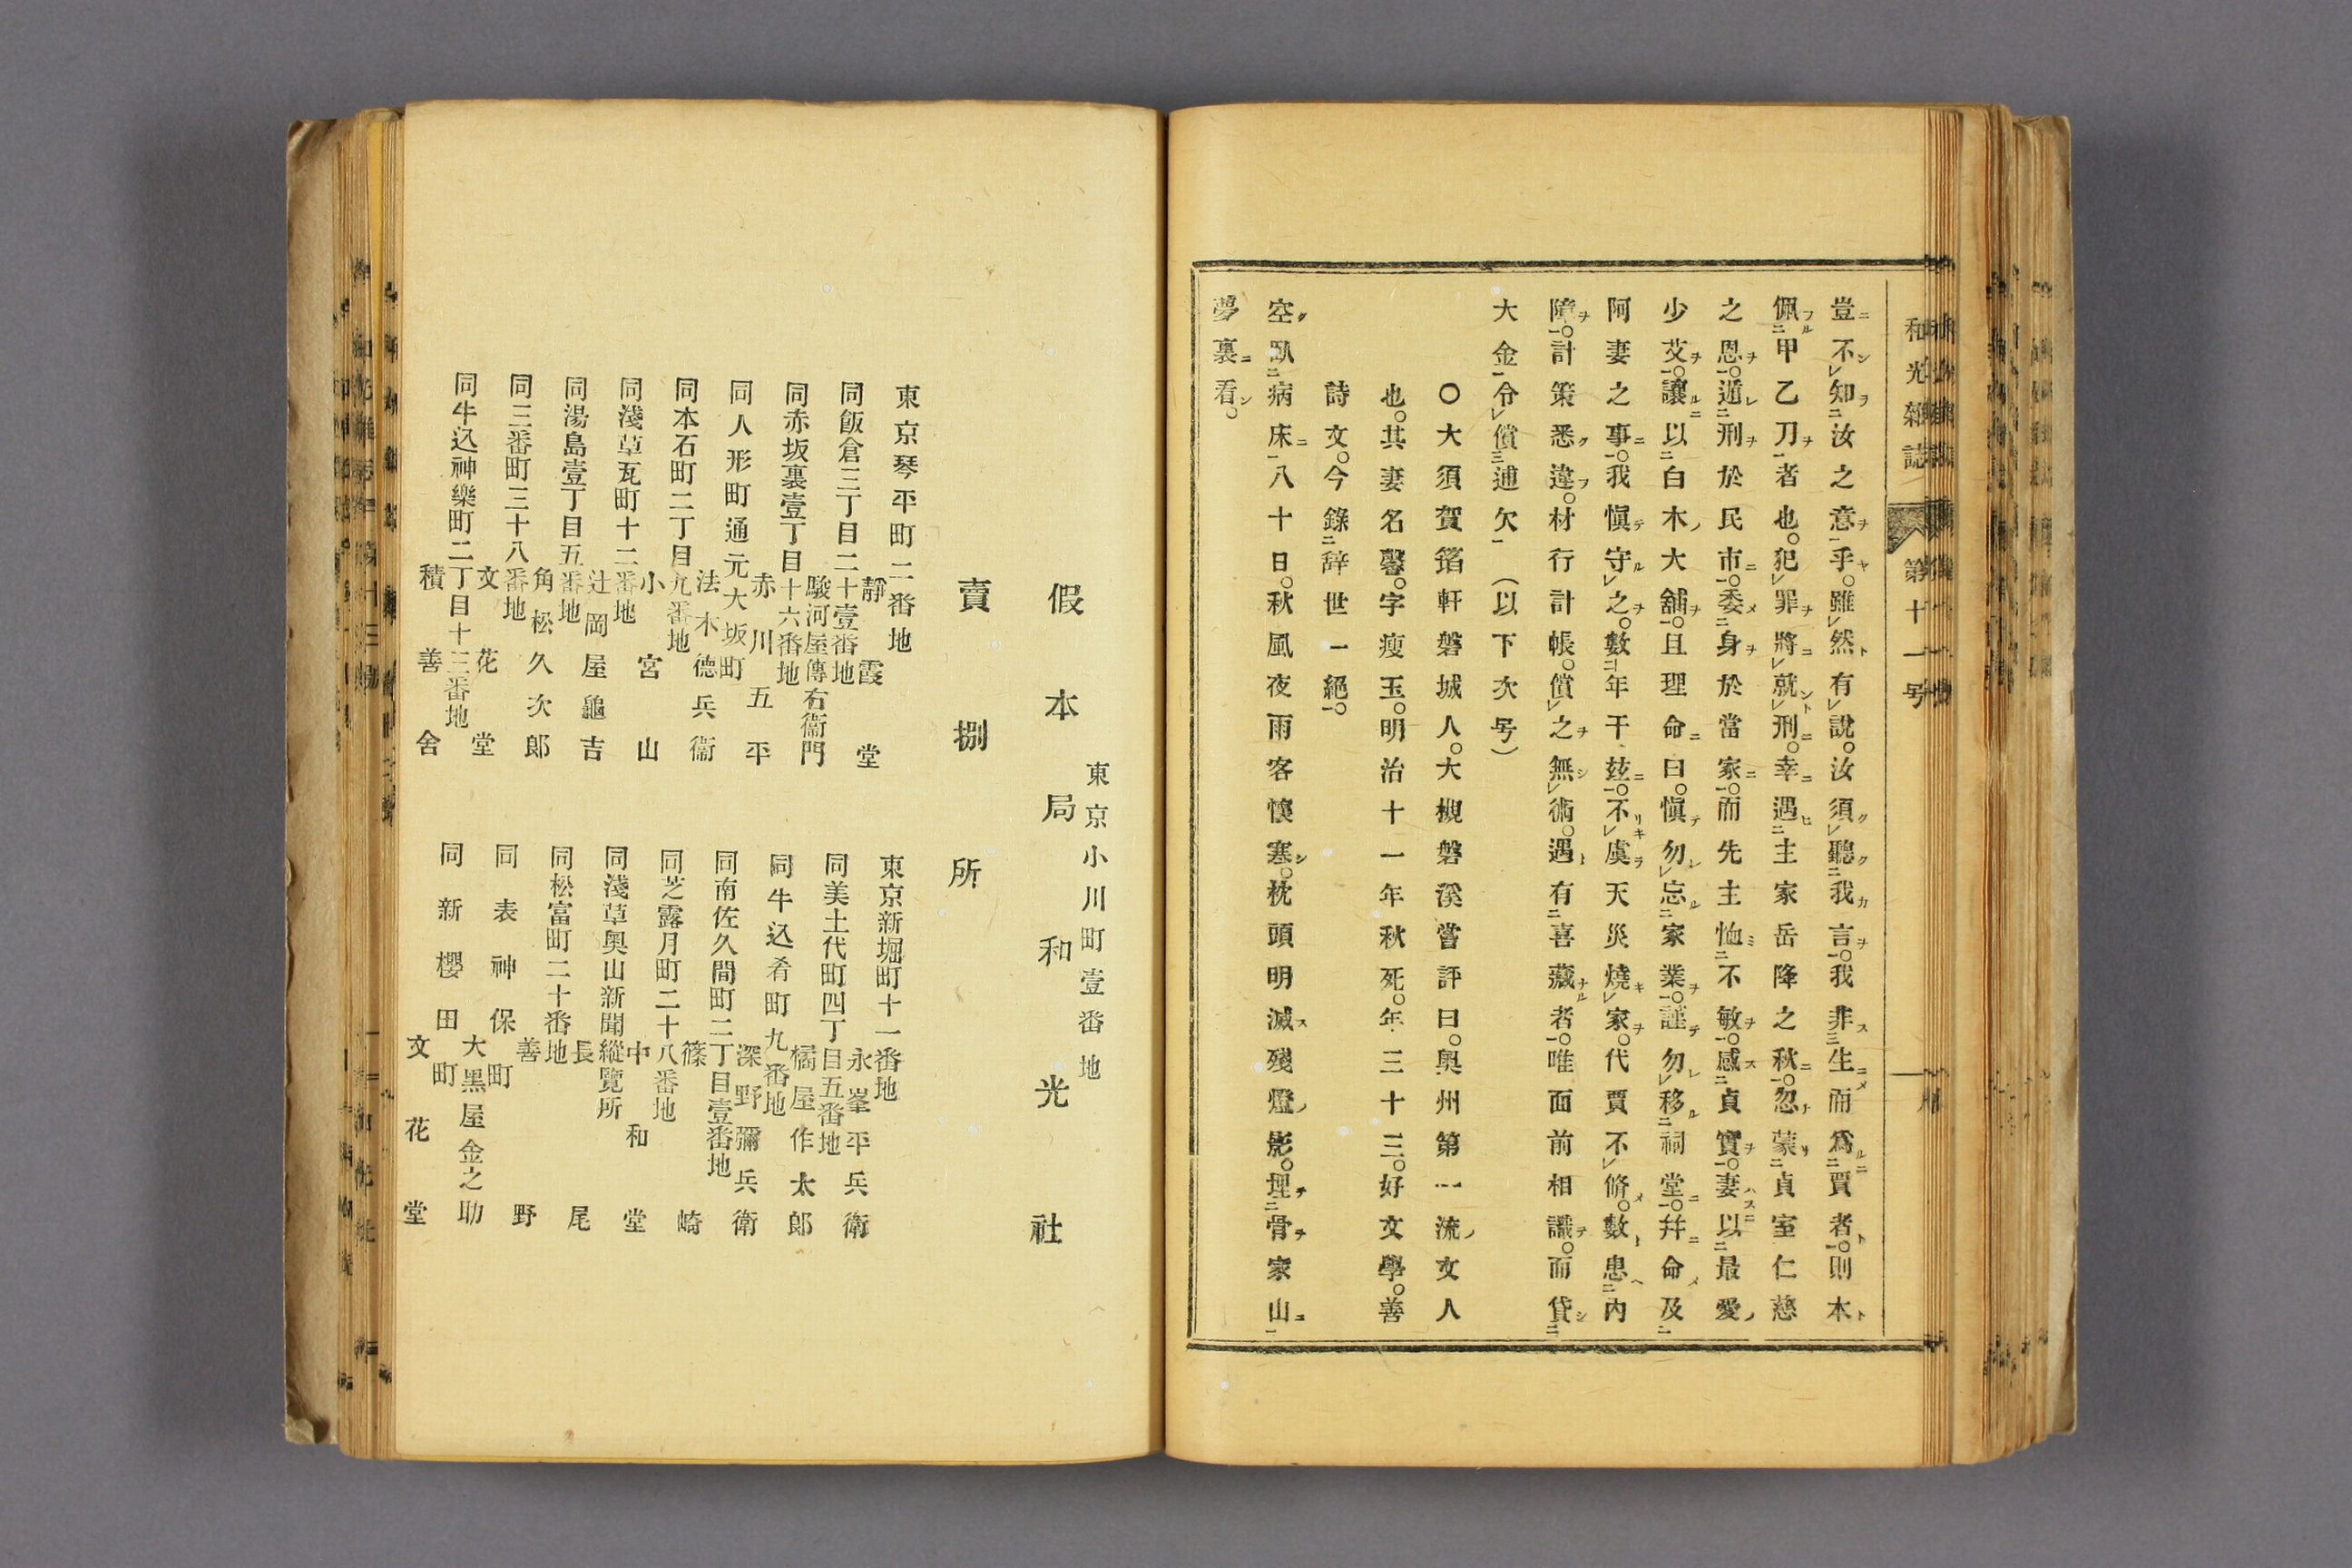 和光雜誌 第十一号
豈不知汝之意乎。雖然有說。汝須聽我言。我非生而爲賈者。則本
佩甲乙刀者也。犯罪將就刑。幸遇主家岳降之秋。忽蒙貞室仁慈
之恩。遁刑於民市。委身於當家。而先主恤不敏。感貞實。妻以最愛
少艾。讓以白木大舖。且理命曰。愼勿忘家業。謹勿移祠堂。幷命及
阿妻之事。我愼守之。數年干玆。不虞天災燒家。代賈不脩。數患內
障。計策悉違。材行計帳。償之無術。遇有喜藏者。唯面前相識。而貸
大金令償逋欠(以下次号)
〇大須賀筠軒磐城人。大槻磐溪嘗評曰。奥州第一流文人
也。其妻名馨。字瘦玉。明治十一年秋死。年二十三。好文學。善
詩文。今錄辞世一絕。
空臥病床八十日。秋風夜雨客懷塞。枕頭明滅殘燈影。埋骨家山
夢裏看。
東京小川町壹番地
假本局 和光社
賣捌所
東京琴平町二番地 靜霞堂
同飯倉三丁目二十壹番地 駿河屋傳右衞門
同赤坂裏壹丁目十六番地 赤川五平
同人形町通元大坂町 法木德兵衞
同本石町二丁目九番地 小宮山
同淺草瓦町十二番地 辻岡屋龜吉
同湯島壹丁目五番地 角松久次郎
同三番町三十八番地 文花堂
同牛込神樂町二丁目十三番地 積善舍
東京新堀町十一番地 永峯平兵衞
同美土代町四丁目五番地 橘屋作太郎
同牛込肴町九番地 深野彌兵衞
同南佐久間町二丁目壹番地 篠崎
同芝露月町二十八番地 中和堂
同淺草奥山新聞縱覽所 長尾
同松富町二十番地 善野
同表神保町 大黒屋金之助
同新櫻田町 文花堂